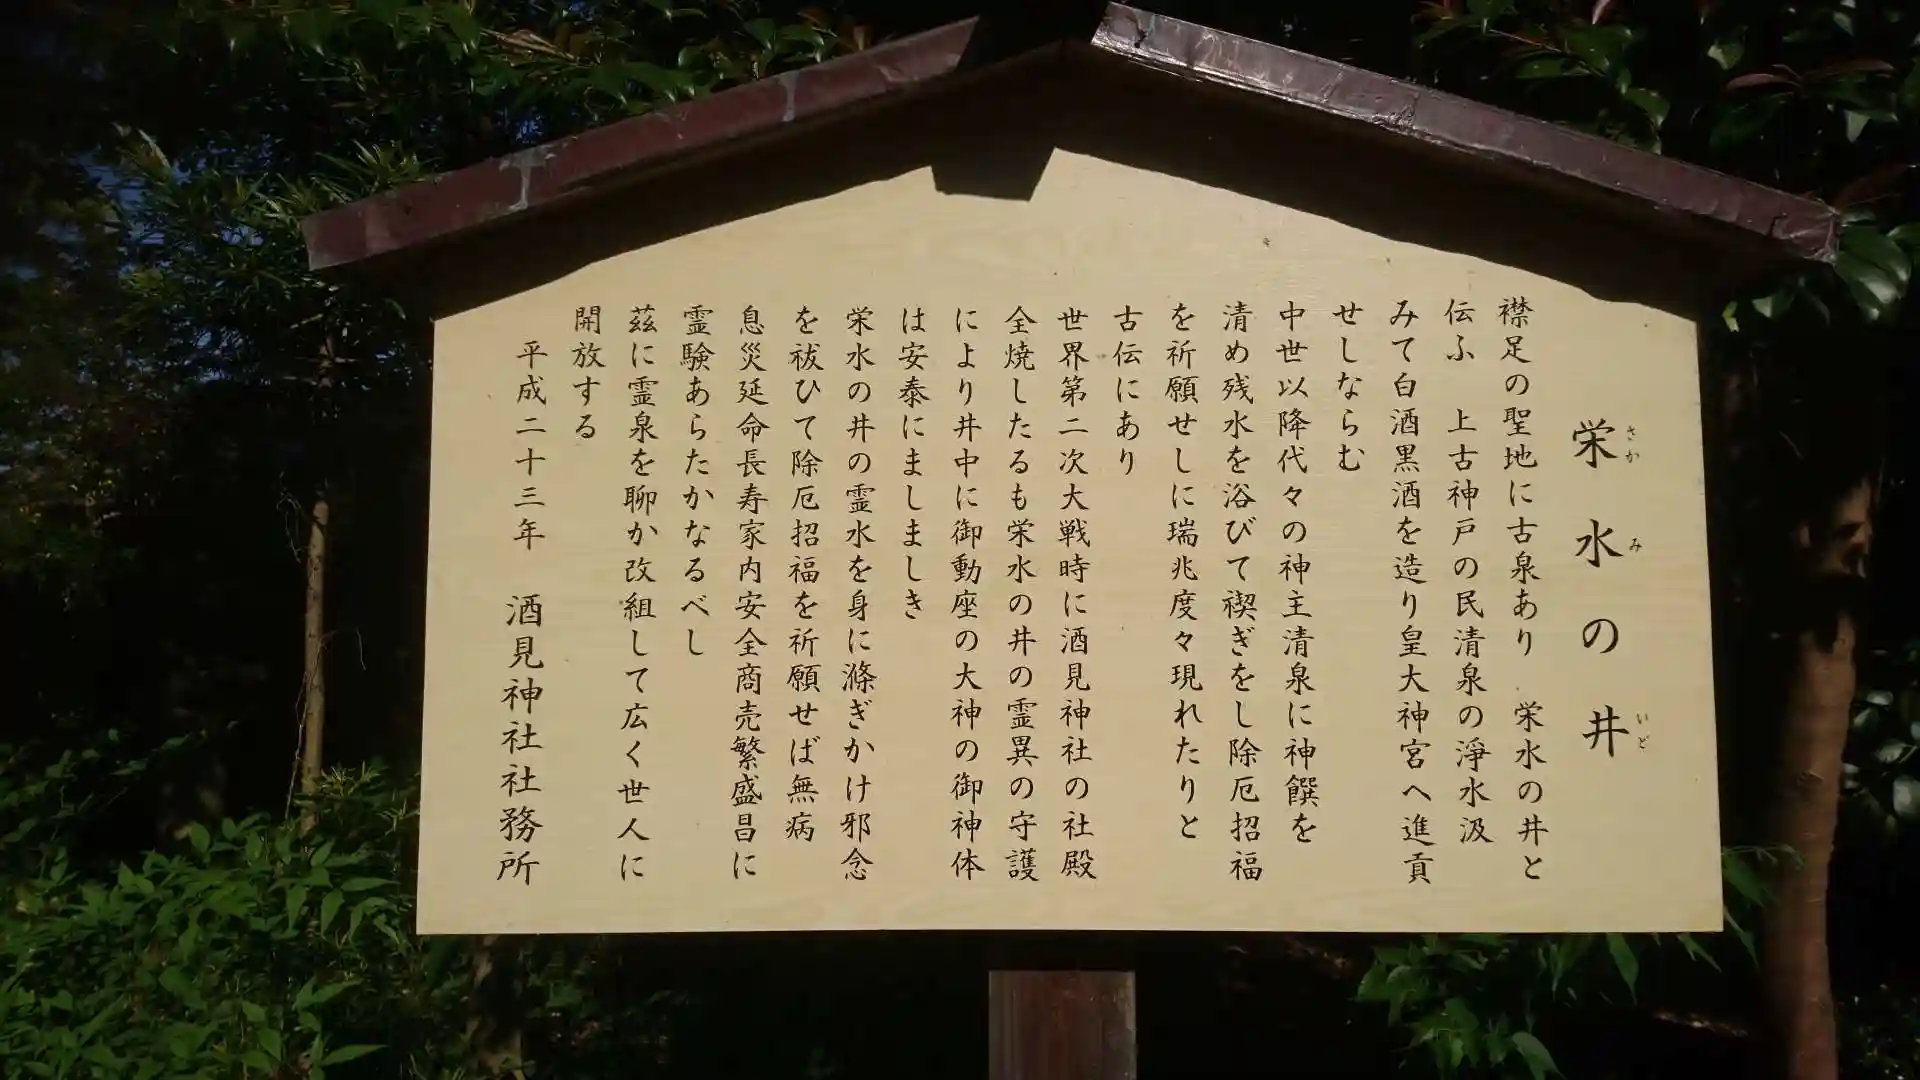 栄水の井
さかみいど
襟足の聖地に古泉あり 栄水の井と
伝ふ 上古神戸の民清泉の淨水汲
みて白酒黒酒を造り皇大神宮へ進貢
せしならむ
中世以降代々の神主清泉に神饌を
清め残水を浴びて禊ぎをし除厄招福
を祈願せしに瑞兆度々現れたりと
古伝にあり
世界第二次大戦時に酒見神社の社殿
全焼したるも栄水の井の霊異の守護
により井中に御動座の大神の御神体
は安泰にましましき
栄水の井の霊水を身に滌ぎかけ邪念
を祓ひて除厄招福を祈願せば無病
息災延命長寿家内安全商売繁盛昌に
霊験あらたかなるべし
茲に霊泉を聊か改組して広く世人に
開放する
平成二十三年 酒見神社社務所